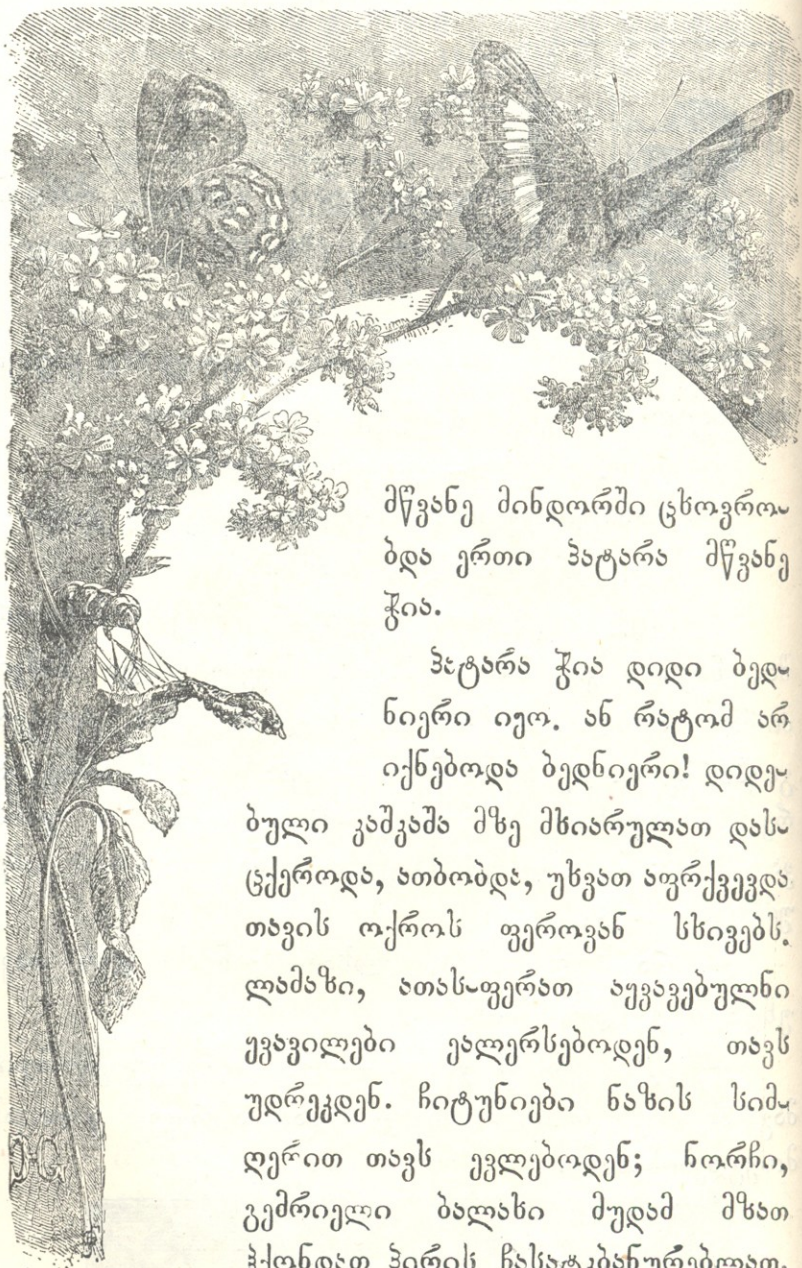 მწვანე მინდორში ცხოვრო-
ბდა ერთი პატარა მწვანე
ჭია.
პატარა ჭია დიდი ბედ-
ნიერი იყო. ან რატომ არ
იქნებოდა ბედნიერი! დიდე-
ბული კაშკაშა მზე მხიარულათ დას-
ცქეროდა, ათბობდა, უხვათ აფრქვევდა
თავის ოქროს ფეროვან სხივებს.
ლამაზი, ათას-ფერათ აყვავებულნი
ყვავილები ეალერსებოდენ, თავს
უდრეკდენ. ჩიტუნიები ნაზის სიმ-
ღერით თავს ევლებოდენ; ნორჩი,
გემრიელი ბალახი მუდამ მზათ
ჰქონდათ პირის ჩასატკბანურებლათ.